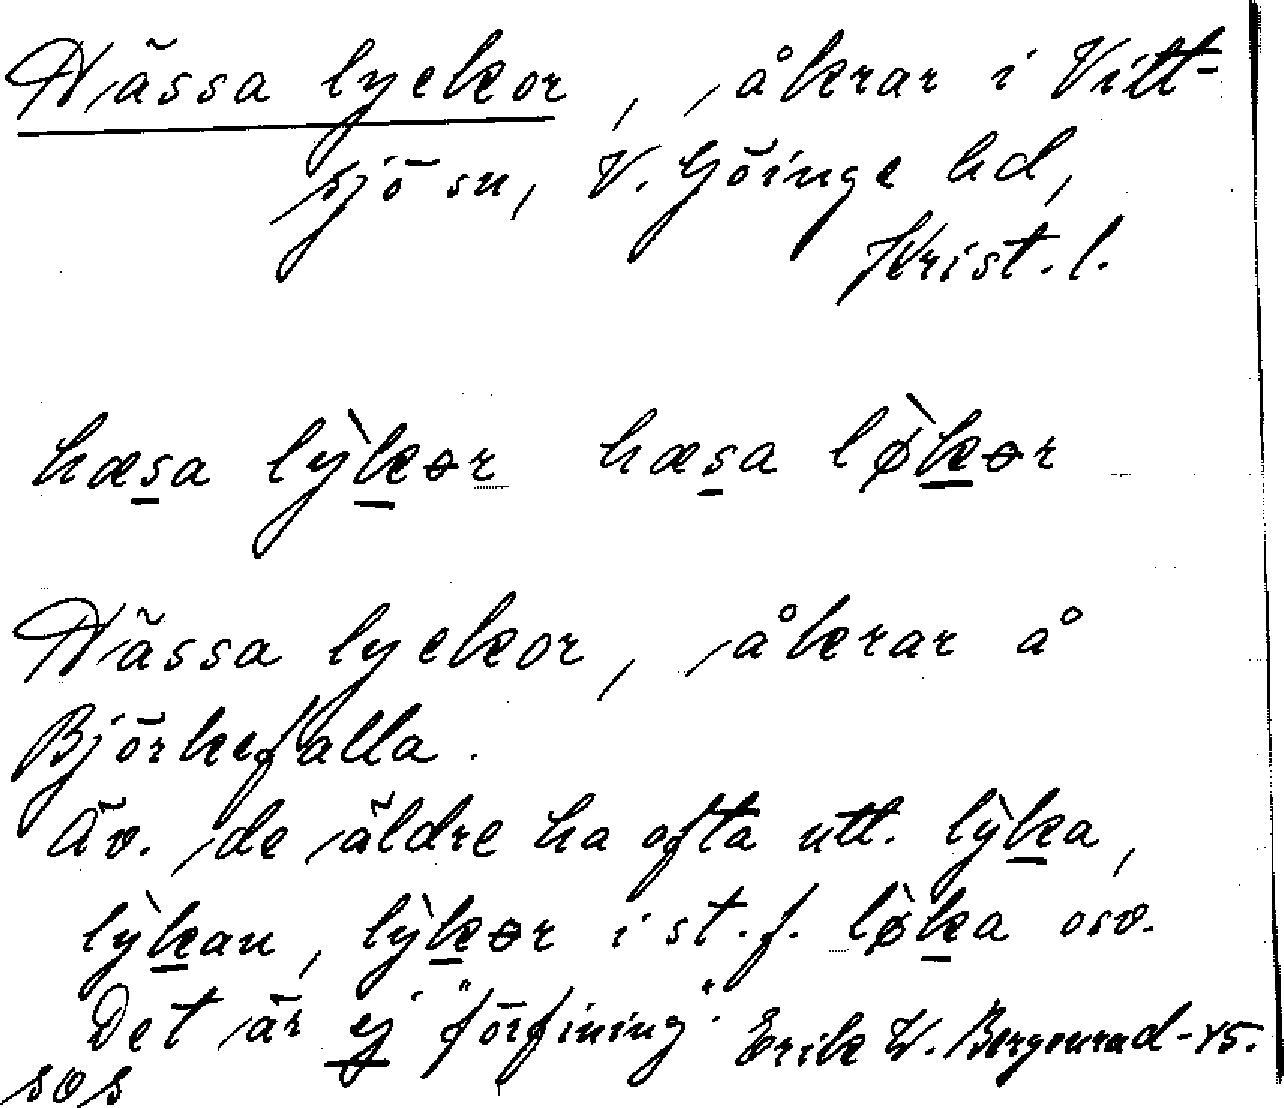 Hässa lyckor, åkrar i Vitt-
sjö sn, V. Göinge hd,
Krist. l.
hæsa lỳkər hæsa lø̀kər
Hässa lyckor, åkrar å
Björkefalla.
Äv. de äldre ha ofta utt. lỳka,
lỳkan, lỳkər i st. f. lø̀ka osv.
Det är ej "förfining". Erik W. Bergenrad -45.
SOS